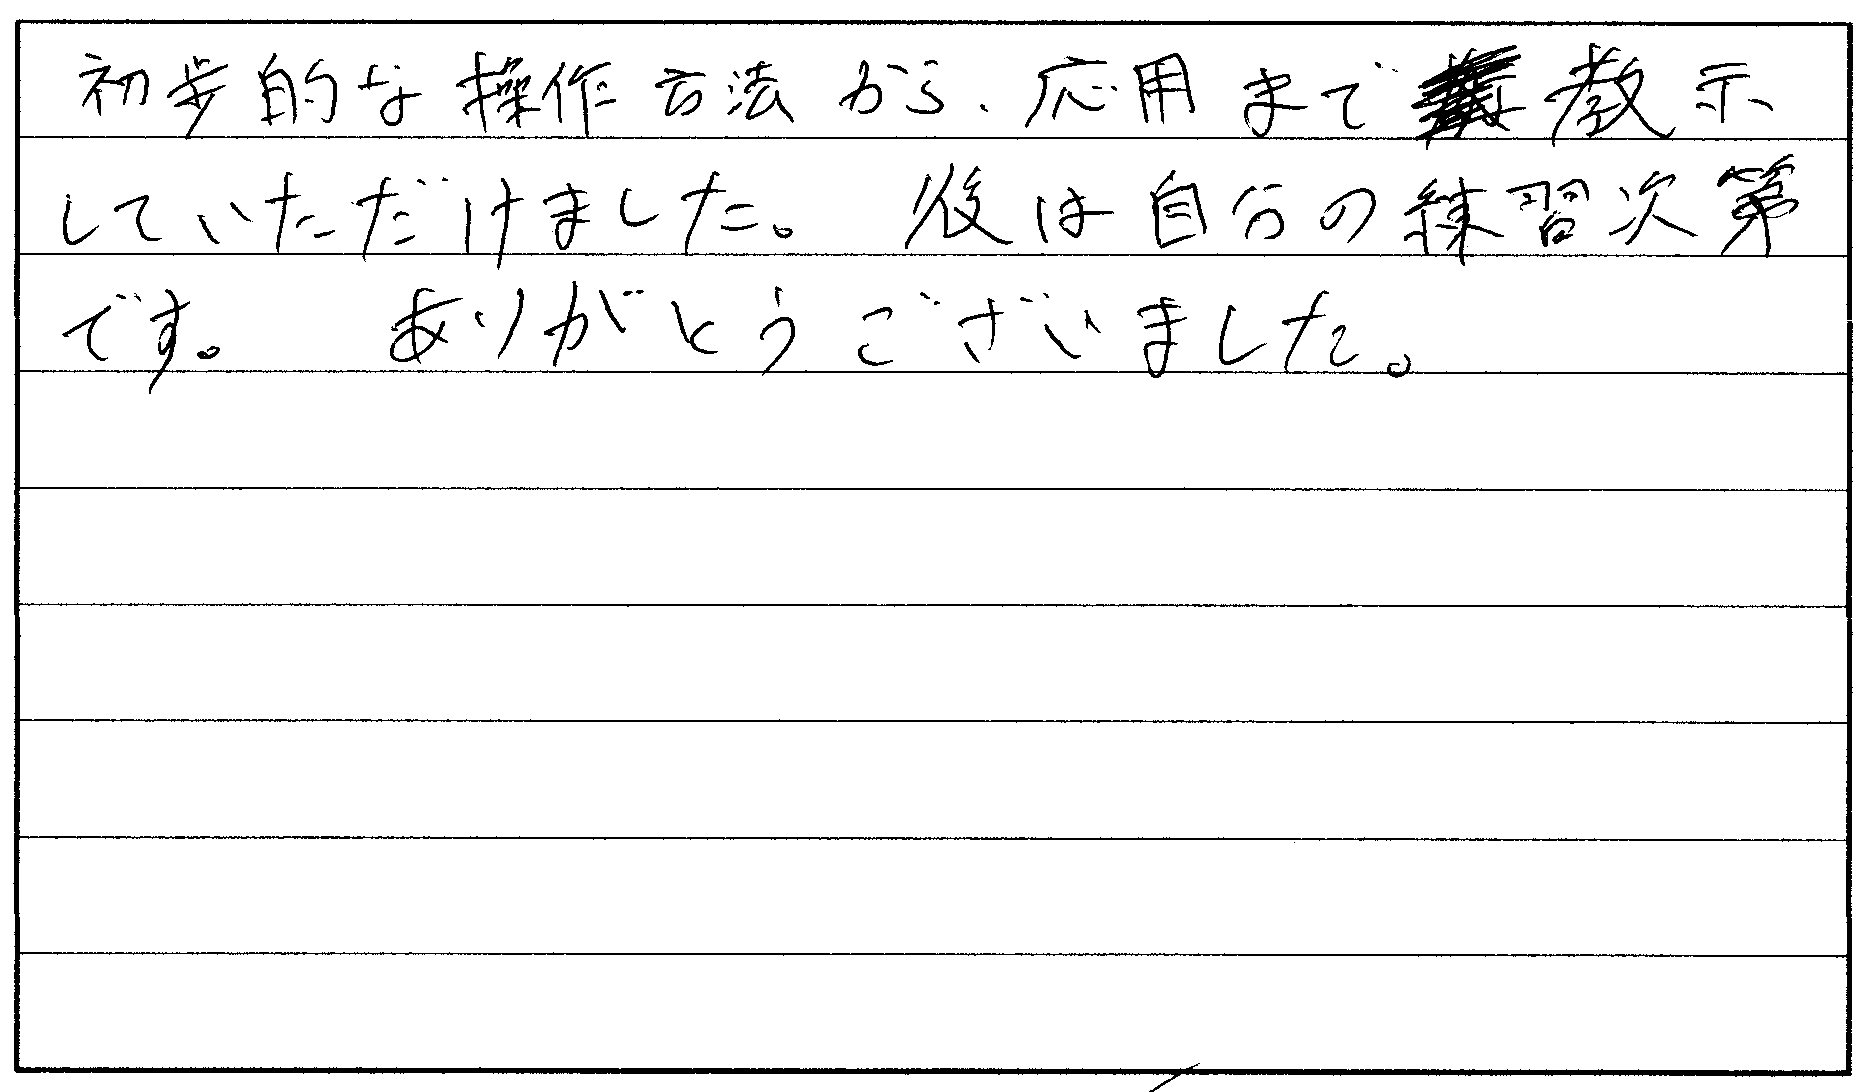 初歩的な操作方法から、応用まで教示
していただけました。後は自分の練習次第
です。 ありがとうございました。